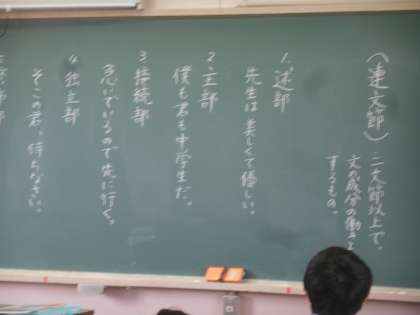 (連文節)
二文節以上で、
文の成分の働きを
するもの。
1. 述部
先生は美しくて優しい。
2. 主部
僕も君も中学生だ。
3. 接続部
急いでいるので先に行く。
4. 独立部
そこの君、待ちなさい。